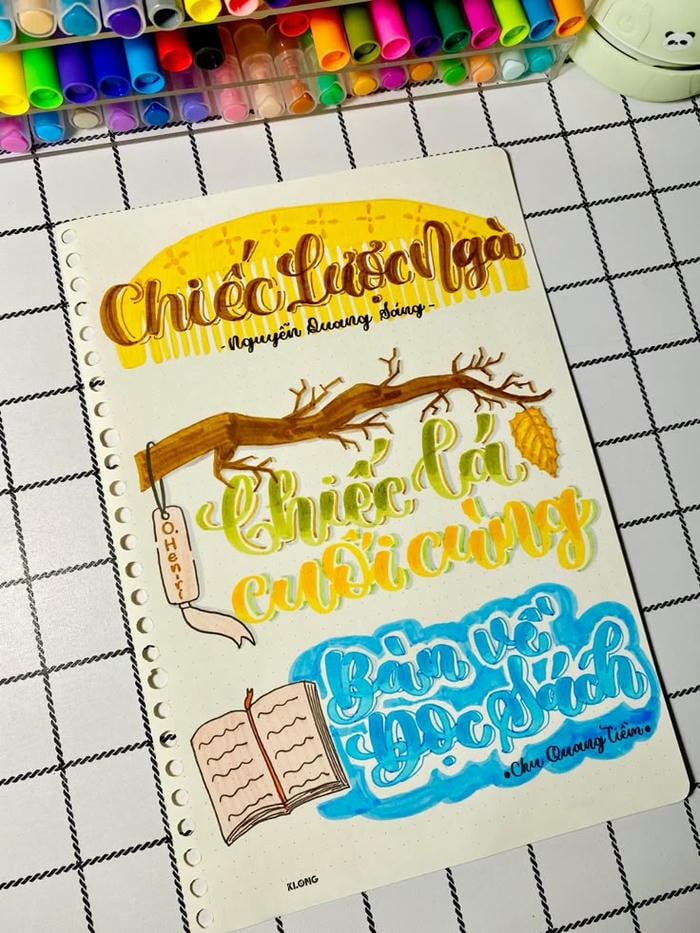 Chiếc Lược Ngà
- Nguyễn Quang Sáng -
Chiếc lá
cuối cùng
O. Henri
Bàn về
Đọc Sách
• Chu Quang Tiềm •
KLONG